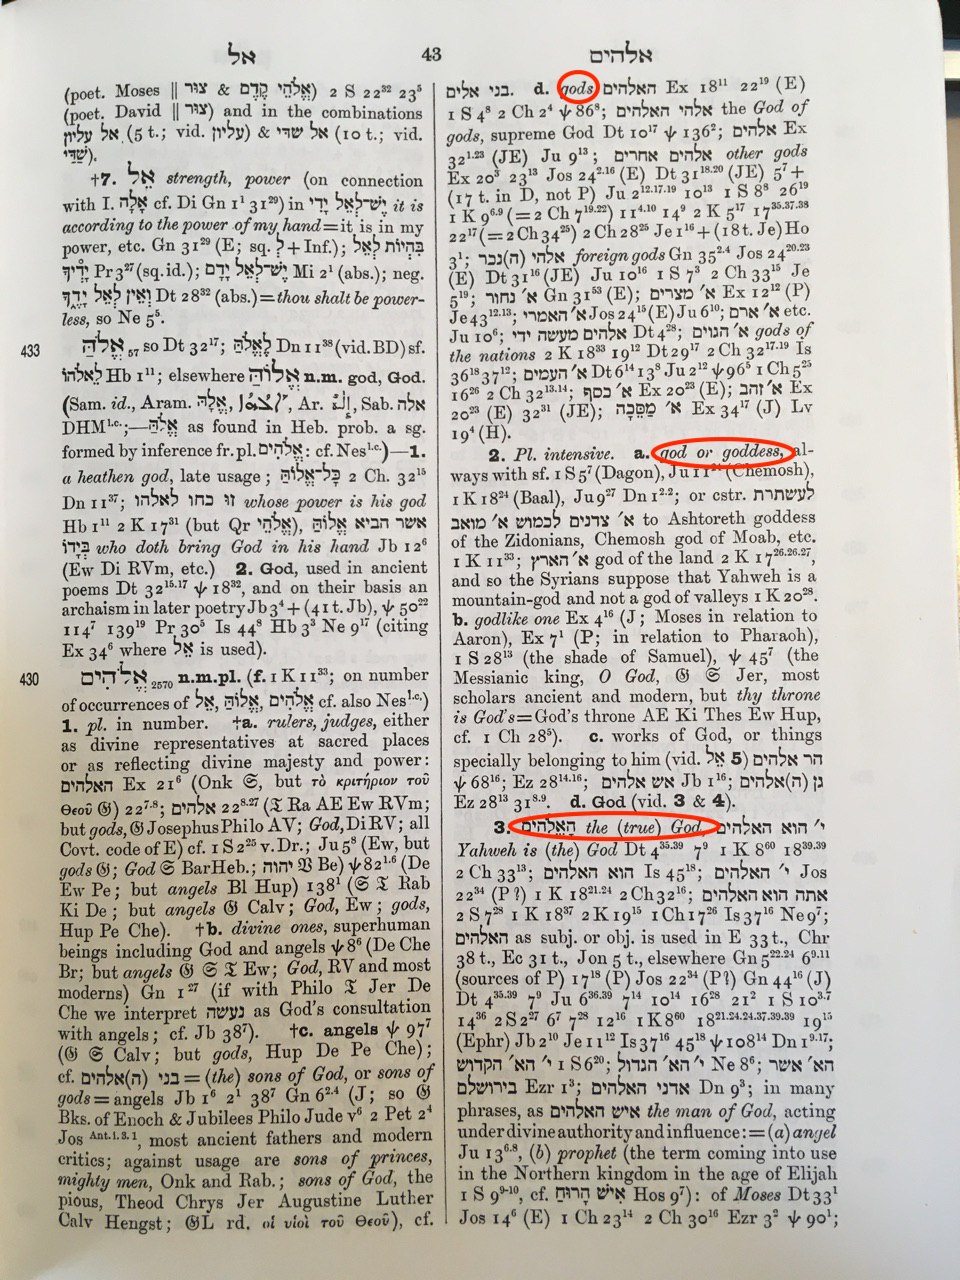 אל 43 אלהים
(poet. Moses ‖ צור & אֱלֹהֵי קֶדֶם) 2 S 22³² 23⁵
(poet. David ‖ צור) and in the combinations
אל עליון (5 t.; vid. עליון) & אל שדי (10 t.; vid.
שַׁדַּי).
†7. אֵל strength, power (on connection
with I. אָלָה cf. Di Gn 1¹ 31²⁹) in יֶשׁ־לְאֵל יָדִי it is
according to the power of my hand = it is in my
power, etc. Gn 31²⁹ (E; sq. לְ + Inf.); בִּהְיוֹת לְאֵל
יָדְךָ Pr 3²⁷ (sq. id.); יֶשׁ־לְאֵל יָדָם Mi 2¹ (abs.); neg.
וְאֵין לְאֵל יָדֶךָ Dt 28³² (abs.) = thou shalt be power-
less, so Ne 5⁵.
433 אֱלֹהַּ ₅₇ so Dt 32¹⁷; לֶאֱלֹהַּ Dn 11³⁸ (vid. BD) sf.
לֵאלֹהוֹ Hb 1¹¹; elsewhere אֱלוֹהַּ n.m. god, God.
(Sam. id., Aram. אֱלָהּ, Ar. Sab. אלה
DHM¹·ᶜ·;—אֱלֹהַּ as found in Heb. prob. a sg.
formed by inference fr. pl. אֱלֹהִים: cf. Nes¹·ᶜ·)—1.
a heathen god, late usage; כָּל־אֱלוֹהַּ 2 Ch. 32¹⁵
Dn 11³⁷; זו כחו לאלהו whose power is his god
Hb 1¹¹ 2 K 17³¹ (but Qr אֱלֹהֵי), אשר הביא אֱלוֹהַּ
בְּיָדוֹ who doth bring God in his hand Jb 12⁶
(Ew Di RVm, etc.) 2. God, used in ancient
poems Dt 32¹⁵·¹⁷ ψ 18³², and on their basis an
archaism in later poetry Jb 3⁴ + (41 t. Jb), ψ 50²²
114⁷ 139¹⁹ Pr 30⁵ Is 44⁸ Hb 3³ Ne 9¹⁷ (citing
Ex 34⁶ where אֵל is used).
430 אֱלֹהִים ₂₅₇₀ n.m.pl. (f. 1 K 11³³; on number
of occurrences of אֵל, אֱלוֹהַּ, אֱלֹהִים cf. also Nes¹·ᶜ·)
1. pl. in number. †a. rulers, judges, either
as divine representatives at sacred places
or as reflecting divine majesty and power:
האלהים Ex 21⁶ (Onk 𝔖, but τὸ κριτήριον τοῦ
Θεοῦ 𝔊) 22⁷·⁸; אלהים 22⁸·²⁷ (𝔗 Ra AE Ew RVm;
but gods, 𝔊 Josephus Philo AV; God, Di RV; all
Covt. code of E) cf. 1 S 2²⁵ v. Dr.; Ju 5⁸ (Ew, but
gods 𝔊; God 𝔖 BarHeb.; יהוה 𝔙 Be) ψ 82¹·⁶ (De
Ew Pe; but angels Bl Hup) 138¹ (𝔖 𝔗 Rab
Ki De; but angels 𝔊 Calv; God, Ew; gods,
Hup Pe Che). †b. divine ones, superhuman
beings including God and angels ψ 8⁶ (De Che
Br; but angels 𝔊 𝔖 𝔗 Ew; God, RV and most
moderns) Gn 1²⁷ (if with Philo 𝔗 Jer De
Che we interpret נעשה as God's consultation
with angels; cf. Jb 38⁷). †c. angels ψ 97⁷
(𝔊 𝔖 Calv; but gods, Hup De Pe Che);
cf. בני (ה)אלהים = (the) sons of God, or sons of
gods = angels Jb 1⁶ 2¹ 38⁷ Gn 6²·⁴ (J; so 𝔊
Bks. of Enoch & Jubilees Philo Jude v⁶ 2 Pet 2⁴
Jos ᴬⁿᵗ·¹·³·¹, most ancient fathers and modern
critics; against usage are sons of princes,
mighty men, Onk and Rab.; sons of God, the
pious, Theod Chrys Jer Augustine Luther
Calv Hengst; 𝔊L rd. οἱ υἱοὶ τοῦ Θεοῦ), cf.
בני אלים. d. gods האלהים Ex 18¹¹ 22¹⁹ (E)
1 S 4⁸ 2 Ch 2⁴ ψ 86⁸; אלהי האלהים the God of
gods, supreme God Dt 10¹⁷ ψ 136²; אלהים Ex
32¹·²³ (JE) Ju 9¹³; אלהים אחרים other gods
Ex 20³ 23¹³ Jos 24²·¹⁶ (E) Dt 31¹⁸·²⁰ (JE) 5⁷ +
(17 t. in D, not P) Ju 2¹²·¹⁷·¹⁹ 10¹³ 1 S 8⁸ 26¹⁹
1 K 9⁶·⁹ (= 2 Ch 7¹⁹·²²) 11⁴·¹⁰ 14⁹ 2 K 5¹⁷ 17³⁵·³⁷·³⁸
22¹⁷ (= 2 Ch 34²⁵) 2 Ch 28²⁵ Je 1¹⁶ + (18 t. Je) Ho
3¹; אלהי (ה)נכר foreign gods Gn 35²·⁴ Jos 24²⁰·²³
(E) Dt 31¹⁶ (JE) Ju 10¹⁶ 1 S 7³ 2 Ch 33¹⁵ Je
5¹⁹; א׳ נחור Gn 31⁵³ (E); א׳ מצרים Ex 12¹² (P)
Je 43¹²·¹³; א׳ האמרי Jos 24¹⁵ (E) Ju 6¹⁰; א׳ ארם etc.
Ju 10⁶; אלהים מעשה ידי Dt 4²⁸; א׳ הגוים gods of
the nations 2 K 18³³ 19¹² Dt 29¹⁷ 2 Ch 32¹⁷·¹⁹ Is
36¹⁸ 37¹²; א׳ העמים Dt 6¹⁴ 13⁸ Ju 2¹² ψ 96⁵ 1 Ch 5²⁵
16²⁶ 2 Ch 32¹³·¹⁴; א׳ כסף Ex 20²³ (E); א׳ זהב Ex
20²³ (E) 32³¹ (JE); א׳ מַסֵּכָה Ex 34¹⁷ (J) Lv
19⁴ (H).
2. Pl. intensive. a. god or goddess, al-
ways with sf. 1 S 5⁷ (Dagon), Ju 11²⁴ (Chemosh),
1 K 18²⁴ (Baal), Ju 9²⁷ Dn 1²·²; or cstr. לעשתרת
א׳ צדנים לכמוש א׳ מואב to Ashtoreth goddess
of the Zidonians, Chemosh god of Moab, etc.
1 K 11³³; א׳ הארץ god of the land 2 K 17²⁶·²⁶·²⁷,
and so the Syrians suppose that Yahweh is a
mountain-god and not a god of valleys 1 K 20²⁸.
b. godlike one Ex 4¹⁶ (J; Moses in relation to
Aaron), Ex 7¹ (P; in relation to Pharaoh),
1 S 28¹³ (the shade of Samuel), ψ 45⁷ (the
Messianic king, O God, 𝔊 𝔖 Jer, most
scholars ancient and modern, but thy throne
is God's = God's throne AE Ki Thes Ew Hup,
cf. 1 Ch 28⁵). c. works of God, or things
specially belonging to him (vid. אֵל 5) הר אלהים
ψ 68¹⁶; Ez 28¹⁴·¹⁶; אש אלהים Jb 1¹⁶; גן (ה)אלהים
Ez 28¹³ 31⁸·⁹. d. God (vid. 3 & 4).
3. הָאֱלֹהִים the (true) God, י׳ הוא האלהים
Yahweh is (the) God Dt 4³⁵·³⁹ 7⁹ 1 K 8⁶⁰ 18³⁹·³⁹
2 Ch 33¹³; הוא האלהים Is 45¹⁸; י׳ האלהים Jos
22³⁴ (P ?) 1 K 18²¹·²⁴ 2 Ch 32¹⁶; אתה הוא האלהים
2 S 7²⁸ 1 K 18³⁷ 2 K 19¹⁵ 1 Ch 17²⁶ Is 37¹⁶ Ne 9⁷;
האלהים as subj. or obj. is used in E 33 t., Chr
38 t., Ec 31 t., Jon 5 t., elsewhere Gn 5²²·²⁴ 6⁹·¹¹
(sources of P) 17¹⁸ (P) Jos 22³⁴ (P?) Gn 44¹⁶ (J)
Dt 4³⁵·³⁹ 7⁹ Ju 6³⁶·³⁹ 7¹⁴ 10¹⁴ 16²⁸ 21² 1 S 10³·⁷
14³⁶ 2 S 2²⁷ 6⁷ 7²⁸ 12¹⁶ 1 K 8⁶⁰ 18²¹·²⁴·²⁴·³⁷·³⁹·³⁹ 19¹⁵
(Ephr) Jb 2¹⁰ Je 11¹² Is 37¹⁶ 45¹⁸ ψ 108¹⁴ Dn 1⁹·¹⁷;
י׳ הא׳ הקדוש 1 S 6²⁰; י׳ הא׳ הגדול Ne 8⁶; הא׳ אשר
בירושלם Ezr 1³; אדני האלהים Dn 9³; in many
phrases, as איש האלהים the man of God, acting
under divine authority and influence: = (a) angel
Ju 13⁶·⁸, (b) prophet (the term coming into use
in the Northern kingdom in the age of Elijah
1 S 9⁹⁻¹⁰, cf. אִישׁ הָרוּחַ Hos 9⁷): of Moses Dt 33¹
Jos 14⁶ (E) 1 Ch 23¹⁴ 2 Ch 30¹⁶ Ezr 3² ψ 90¹;